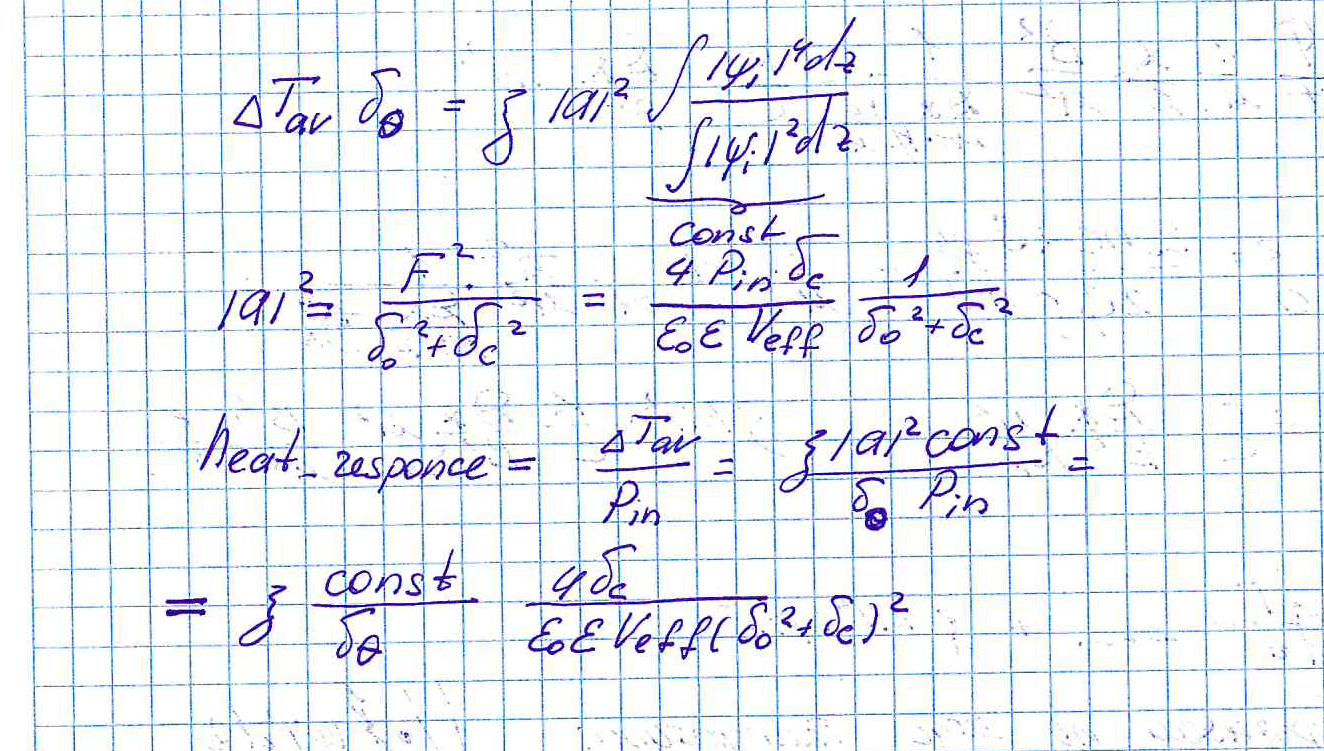 ΔT_av δ_θ = ξ |a|² ∫|ψ_i|⁴dz / ∫|ψ_i|²dz
const
|a|² = F² / (δ_0² + δ_c²) = 4 P_in δ_c / (ε_0 ε V_eff) · 1 / (δ_0² + δ_c²)
heat_responce = ΔT_av / P_in = ξ|a|² const / (δ_θ P_in) =
= ξ const / δ_θ · 4δ_c / (ε_0 ε V_eff (δ_0² + δ_c)²)